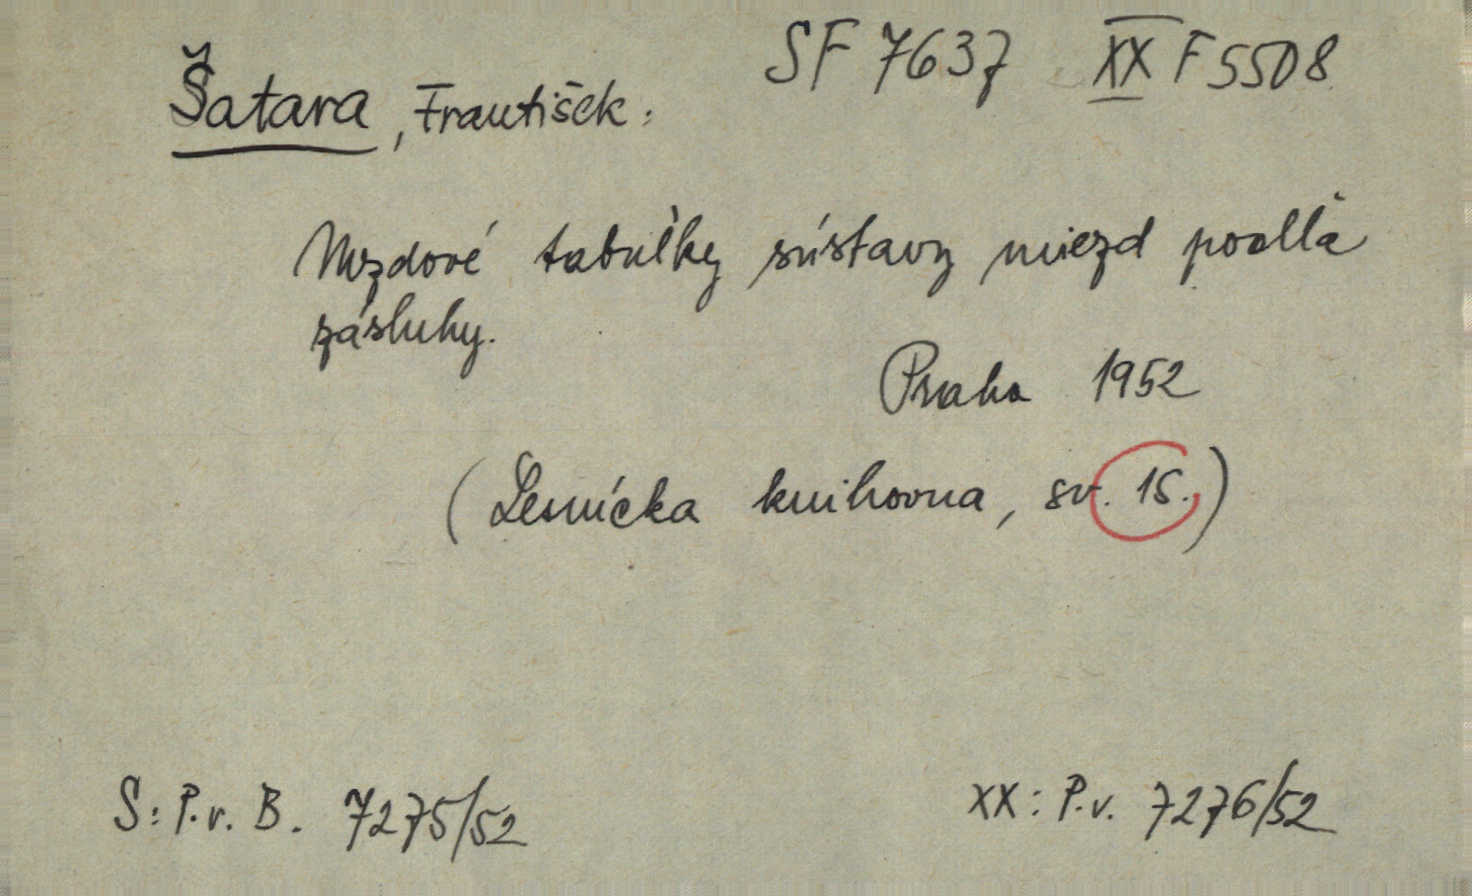 SF 7637 XX F 5508
Šatara, František:
Mzdové tabuľky sústavy miezd podľa
zásluhy.
Praha 1952
(Lesnícka knihovna, sv. 15.)
S: P.v. B. 7275/52
XX: P.v. 7276/52